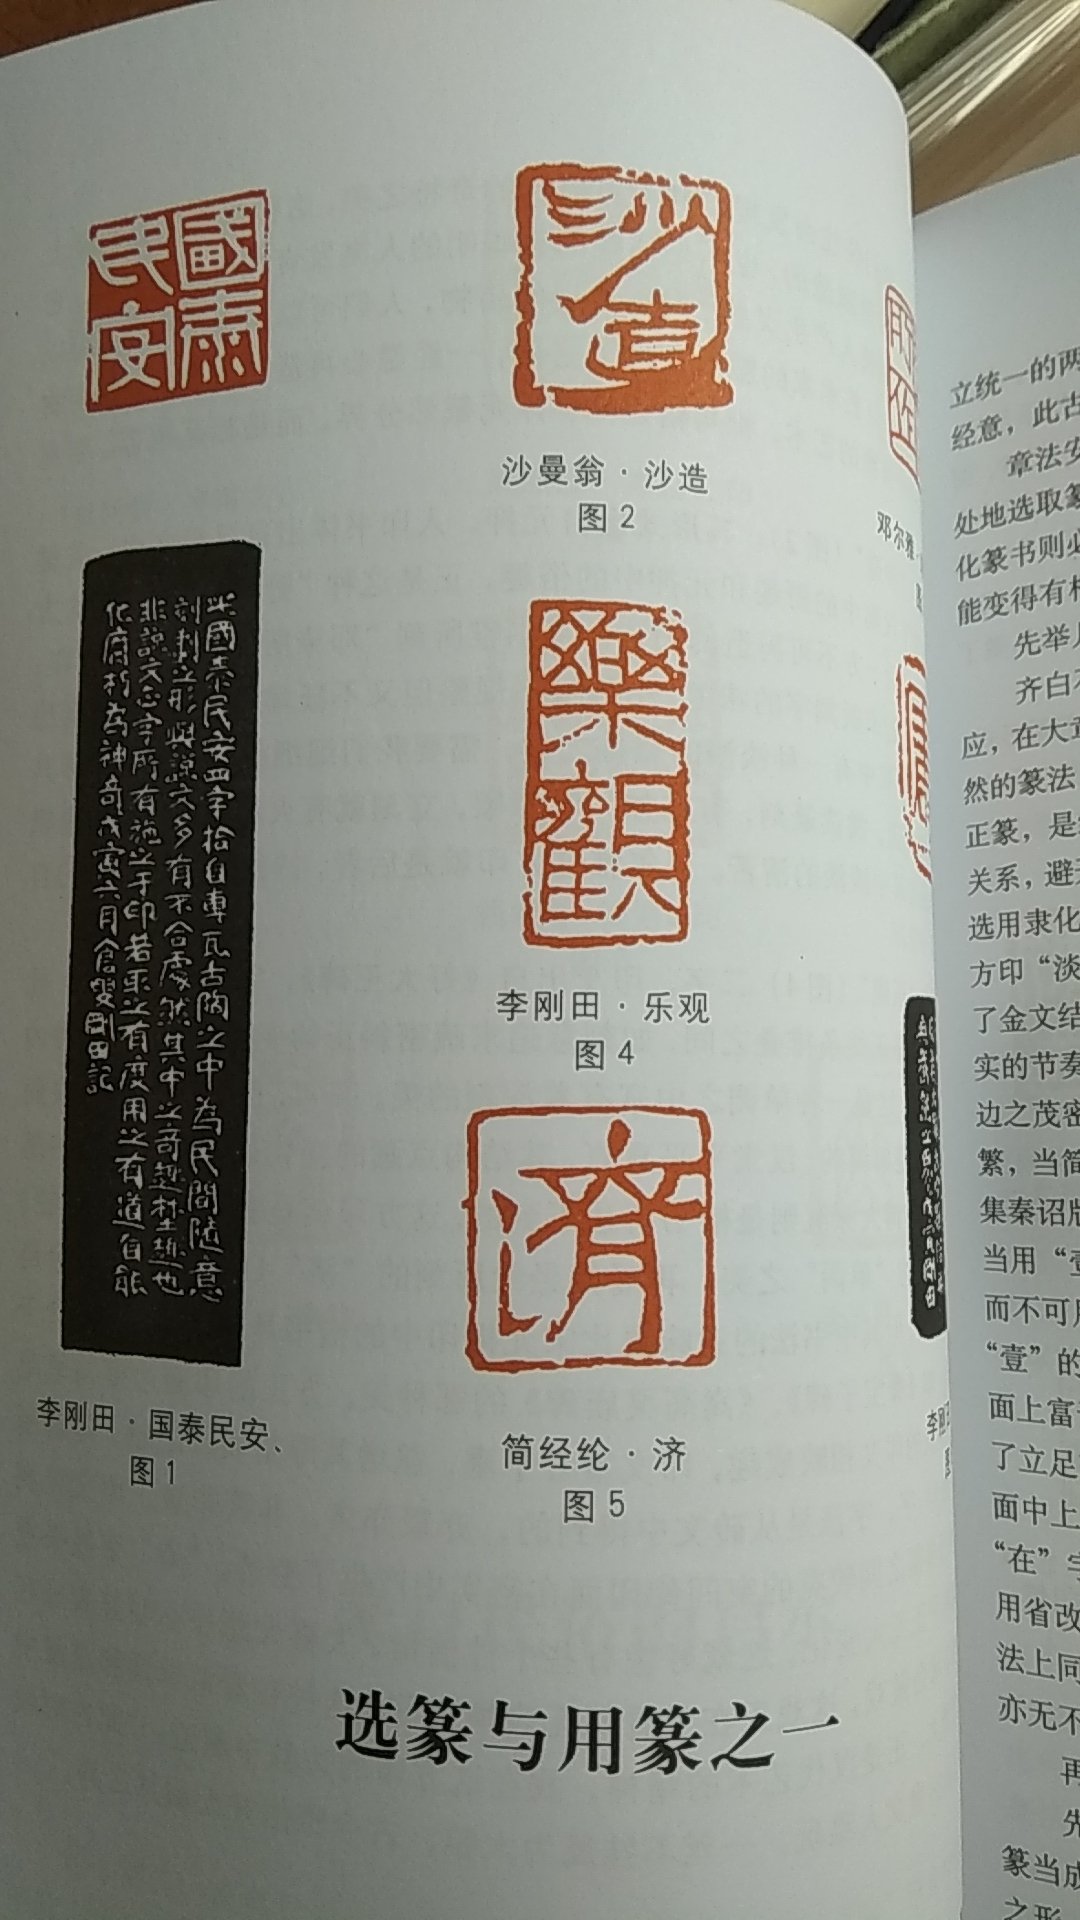 國泰
民安
沙造
沙曼翁·沙造
图2
所
作
邓尔雅
樂觀
李刚田·乐观
图4
此國泰民安四字拾自專瓦古陶之中为民間隨意
刻劃之形與說文多有不合處然其中之奇趣
非說文念字所有施之于印若取之有度用之有道自能
化腐朽為神奇戊寅六月倉叟剛田記
李刚田·国泰民安、
图1
濟
简经纶·济
图5
选篆与用篆之一
立统一的两
经意，此古
章法安
处地选取篆
化篆书则必
能变得有
先举
齐白石
应，在大章
然的篆法
正篆，是
关系，避
选用隶化
方印“淡
了金文结
实的节奏
边之茂密
繁，当简
集秦诏版
当用“壹
而不可
“壹”的
面上富
了立足
面中上
“在”字
用省改
法上同
亦无不
再
先
篆当成
之形